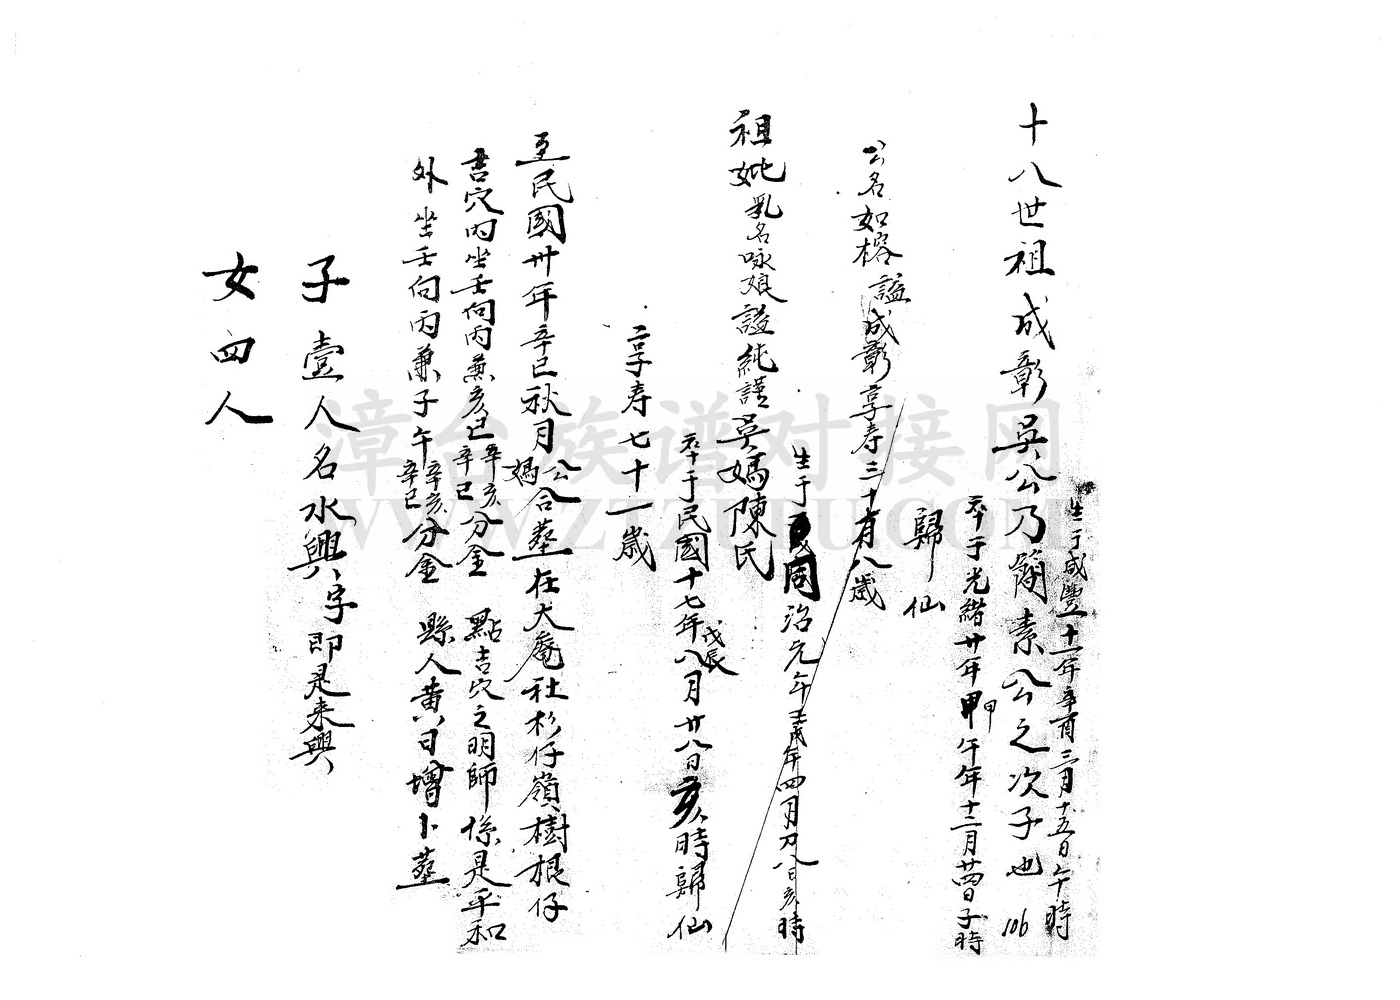 十八世祖成彰吳公乃簡素公之次子也 106
生于咸豐十一年辛酉三月十五日午時
卒于光緒廿年甲午年十二月廿四日子時
歸仙
公名如榕謚成彰享壽三十有八歲
生于同治元年壬戌年四月初八日亥時
祖妣乳名咏娘謚純謹吳媽陳氏
卒于民國十七年戊辰八月廿八日亥時歸仙
享寿七十一歲
至民國卅年辛巳秋月公媽合塟在大庵社杉仔嶺樹根仔
吉穴內坐壬向丙兼亥巳辛亥辛巳分金 點吉穴之明師係是平和
外坐壬向丙兼子午辛亥辛巳分金 縣人黄日增卜塟
子壹人名水興字即是来興
女四人
漳台族谱对接网
WWW.ZTZUPU.COM